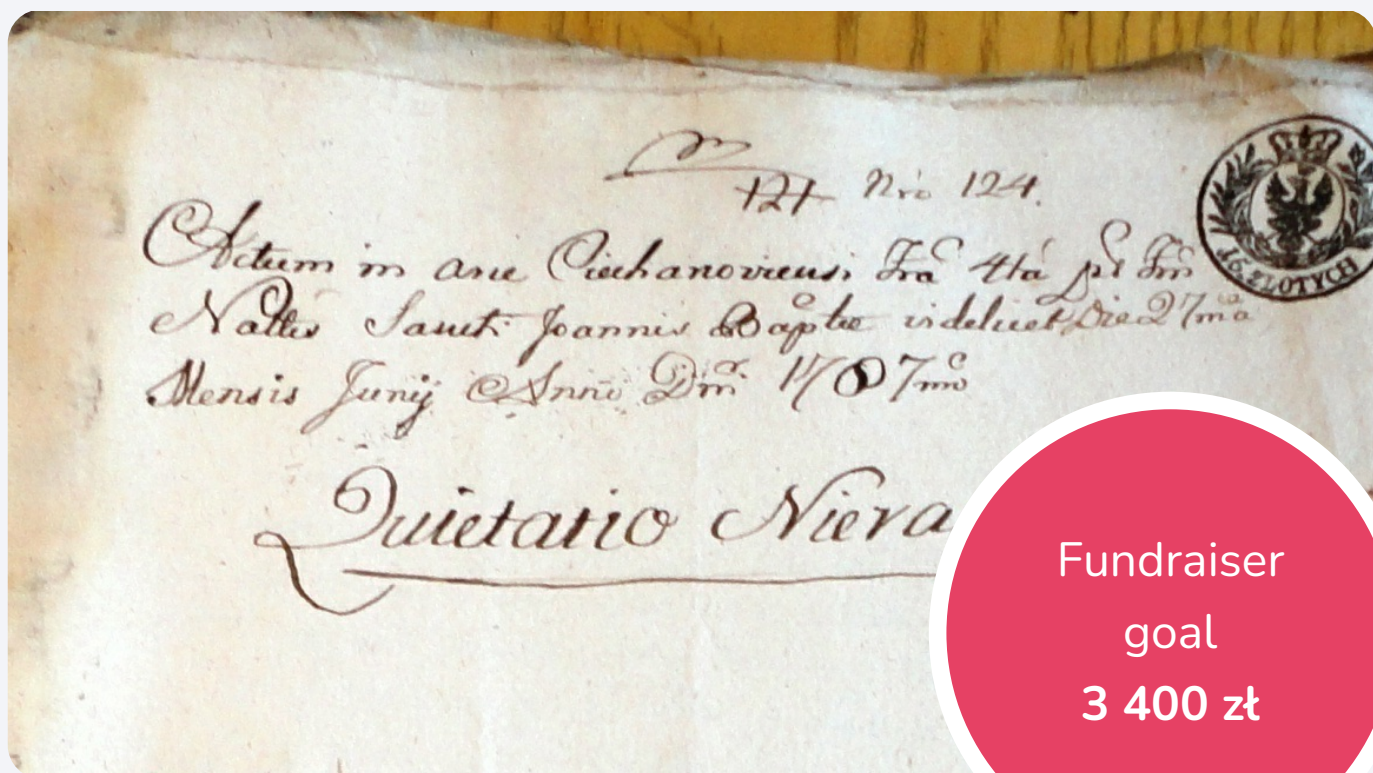 124 Nro 124.
Actum in arce Ciechanoviensi Fra 4ta pt Fm
16. ZŁOTYCH
Nattis Sancti Joannis Baptae videlicet Die 27ma
Mensis Junij Anno Dni 1787mo
Quietatio Niera
Fundraiser
goal
3 400 zł